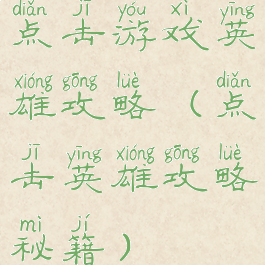 diǎn jī yóu xì yīng
点击游戏英
xióng gōng lüè diǎn
雄攻略（点
jī yīng xióng gōng lüè
击英雄攻略
mì jí
秘籍）